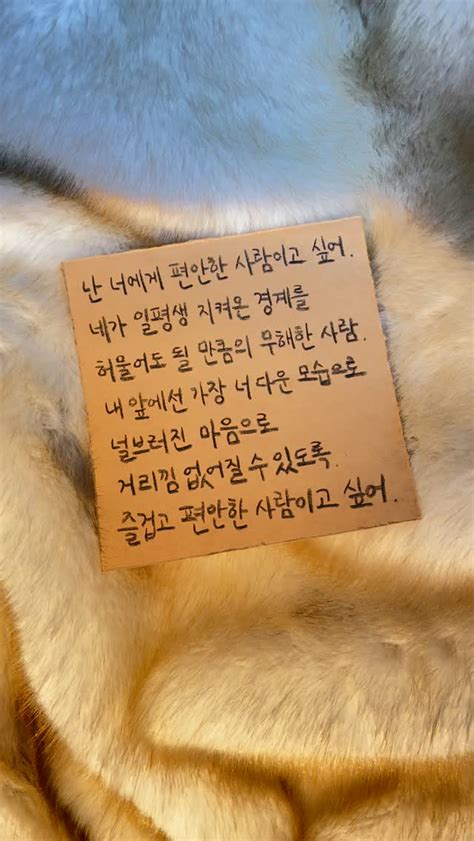 난 너에게 편안한 사람이고 싶어.
네가 일평생 지켜온 경계를
허물어도 될 만큼의 무해한 사람.
내 앞에선 가장 너다운 모습으로
널브러진 마음으로
거리낌 없어질 수 있도록.
즐겁고 편안한 사람이고 싶어.